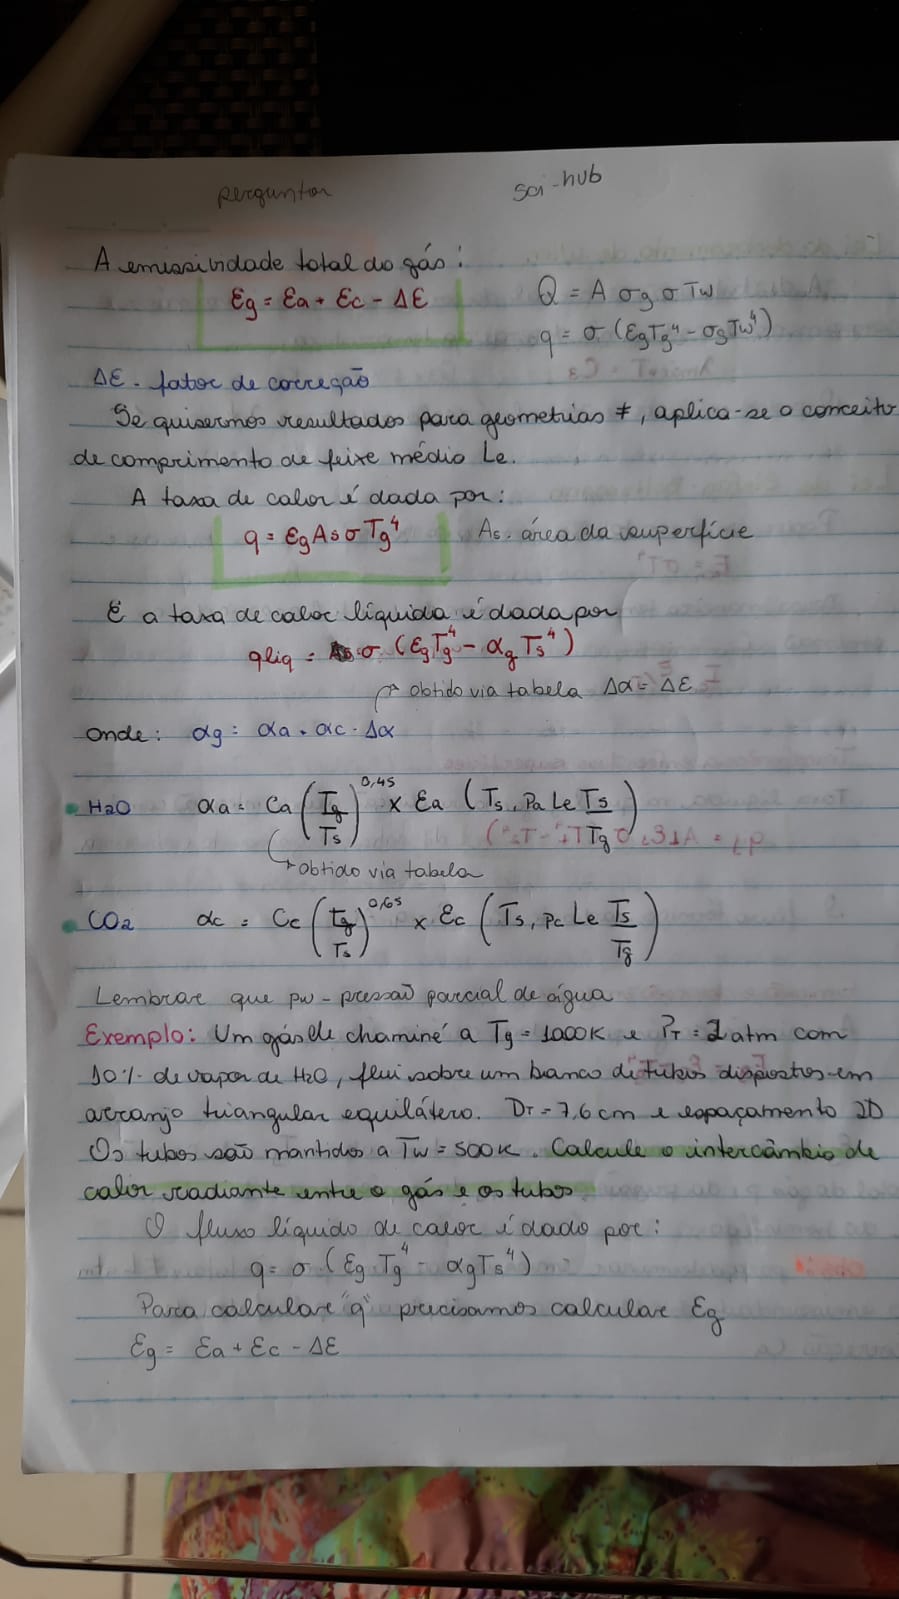 perguntar
sci-hub
A emissividade total do gás:
Eg = Ea + Ec - ΔE
Q = A σg σ Tw
q = σ (EgTg⁴ - σgTw⁴)
ΔE - fator de correção
Se quisermos resultados para geometrias ≠, aplica-se o conceito
de comprimento de feixe médio Le.
A taxa de calor é dada por:
q = Eg As σ Tg⁴ As. área da superfície
E a taxa de calor líquida é dada por
qliq = As σ (EgTg⁴ - αg Ts⁴)
→ obtido via tabela Δα = ΔE
Onde: αg = αa + αc - Δα
H2O αa = Ca (Tg/Ts)^0,45 × Ea (Ts, Pa Le Ts/Tg)
→ obtido via tabela
CO2 αc = Cc (Tg/Ts)^0,65 × Ec (Ts, Pc Le Ts/Tg)
Lembrar que pw - pressão parcial de água
Exemplo: Um gás de chaminé a Tg = 1000K e PT = 2 atm com
10% de vapor de H2O, flui sobre um banco de tubos dispostos em
arranjo triangular equilátero. DT = 7,6 cm e espaçamento 2D
Os tubos são mantidos a Tw = 500K. Calcule o intercâmbio de
calor radiante entre o gás e os tubos
O fluxo líquido de calor é dado por:
q = σ (Eg Tg⁴ - αgTs⁴)
Para calcular "q" precisamos calcular Eg
Eg = Ea + Ec - ΔE